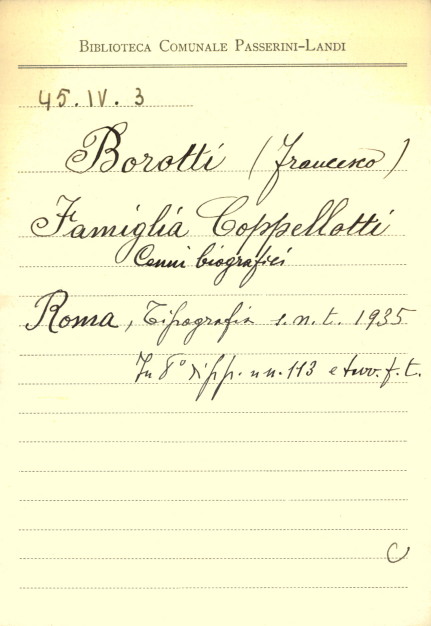 BIBLIOTECA COMUNALE PASSERINI-LANDI
45.IV.3
Borotti (Francesco)
Famiglia Coppellotti
Cenni biografici
Roma, Tipografia s.n.t. 1935
In 8° di pp. n n. 113 e tavv. f. t.
C